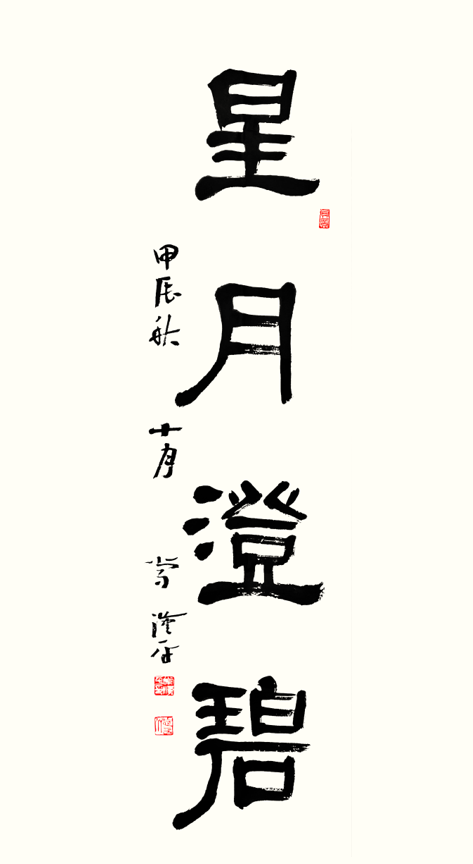 星月澄碧
甲辰秋 十月